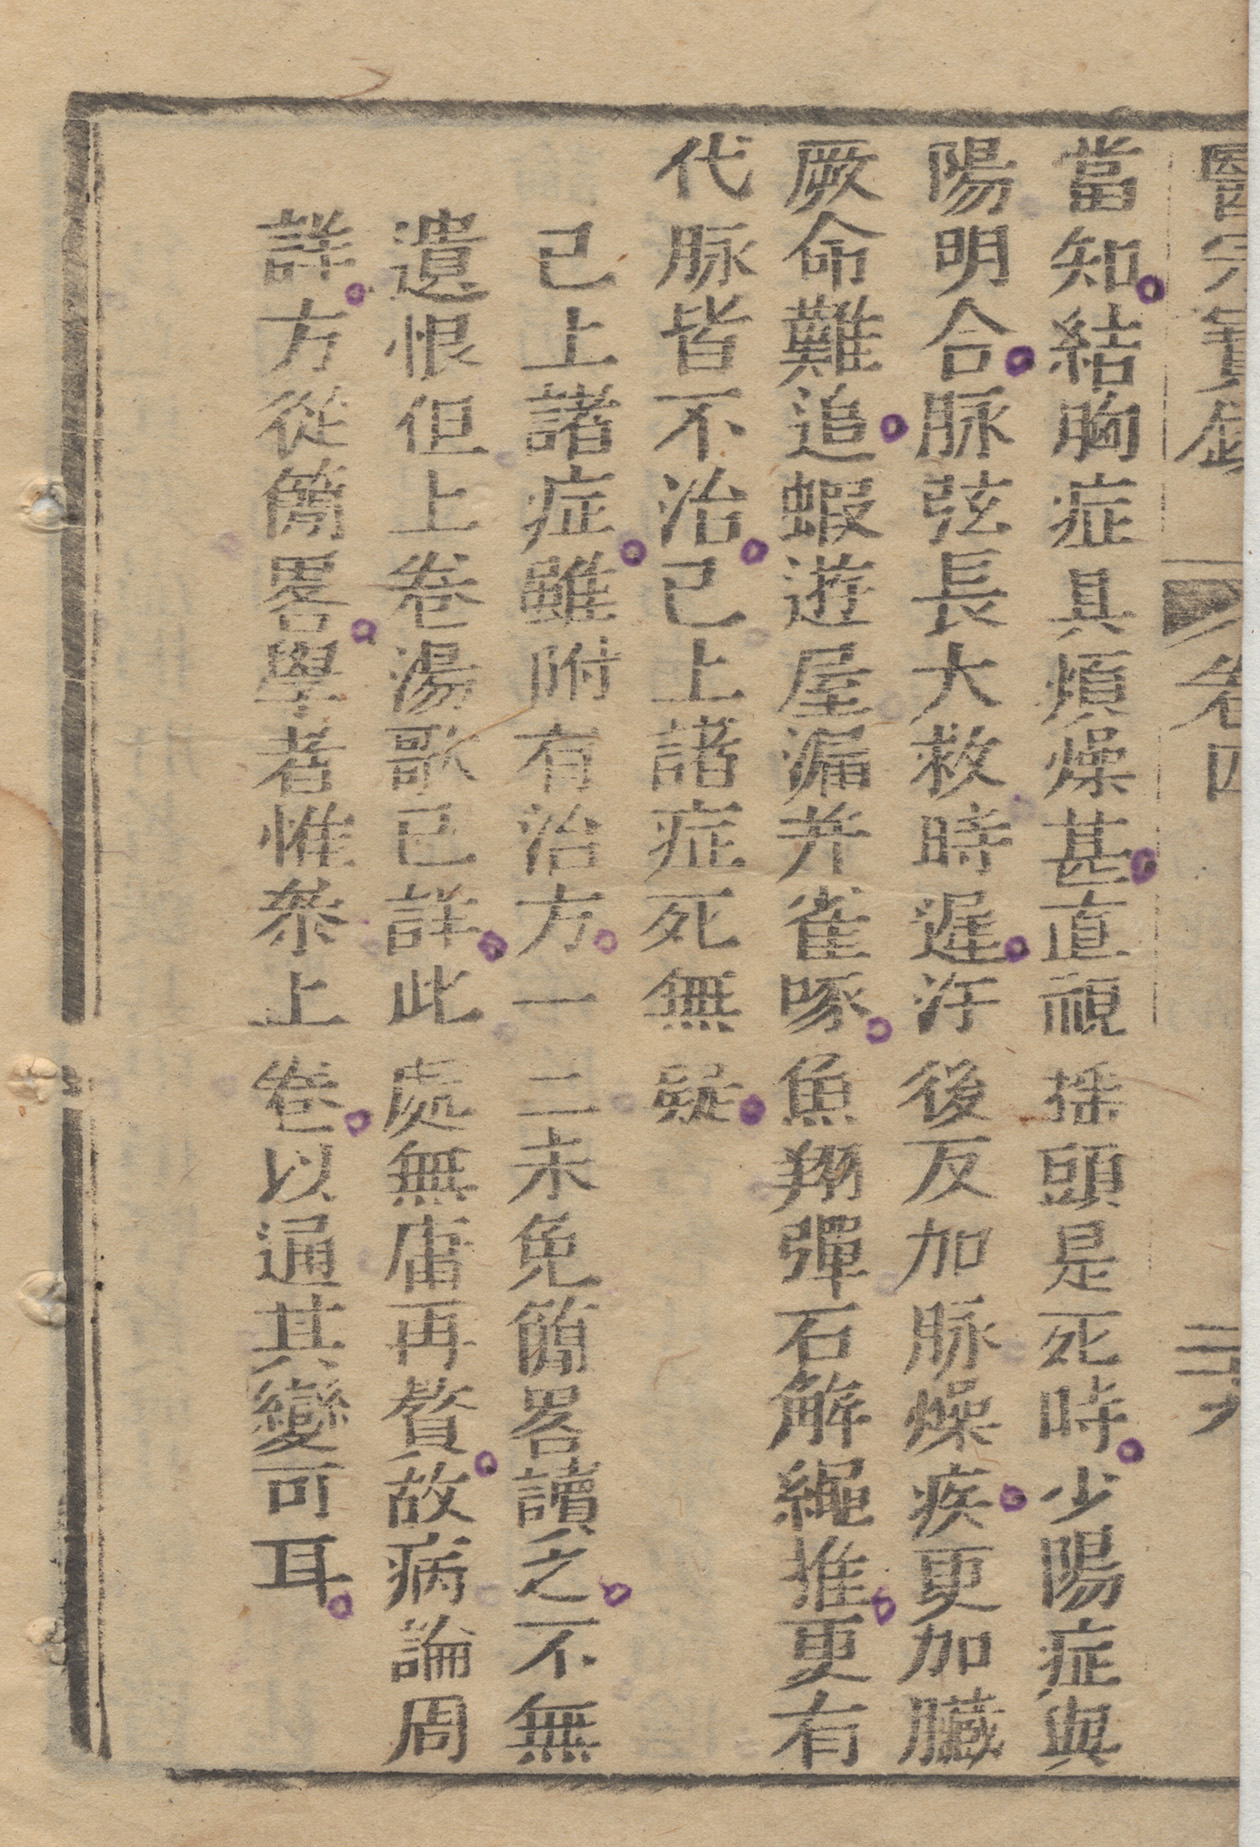 醫宗寶鏡 卷四 三十九
當知結胸症具煩燥甚直視揺頭是死時少陽症與
陽明合脉弦長大救時遲汗後反加脉燥疾更加臓
厥命難追蝦遊屋漏并雀啄魚翔彈石解繩推更有
代脉皆不治已上諸症死無疑
已上諸症雖附有治方一二未免簡畧讀之不無
遺恨但上卷湯歌已詳此處無庸再贅故病論周
詳方從簡畧學者惟叅上卷以通其變可耳